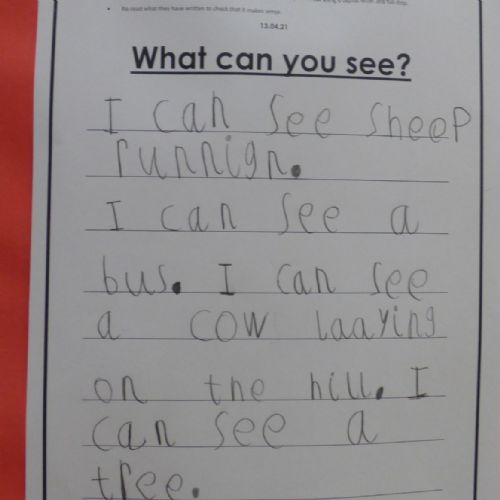 Re-read what they have written to check that it makes sense.
13.04.21
What can you see?
I can see sheep
runnign.
I can see a
bus. I can see
a cow laaying
on the hill. I
can see a
tree.